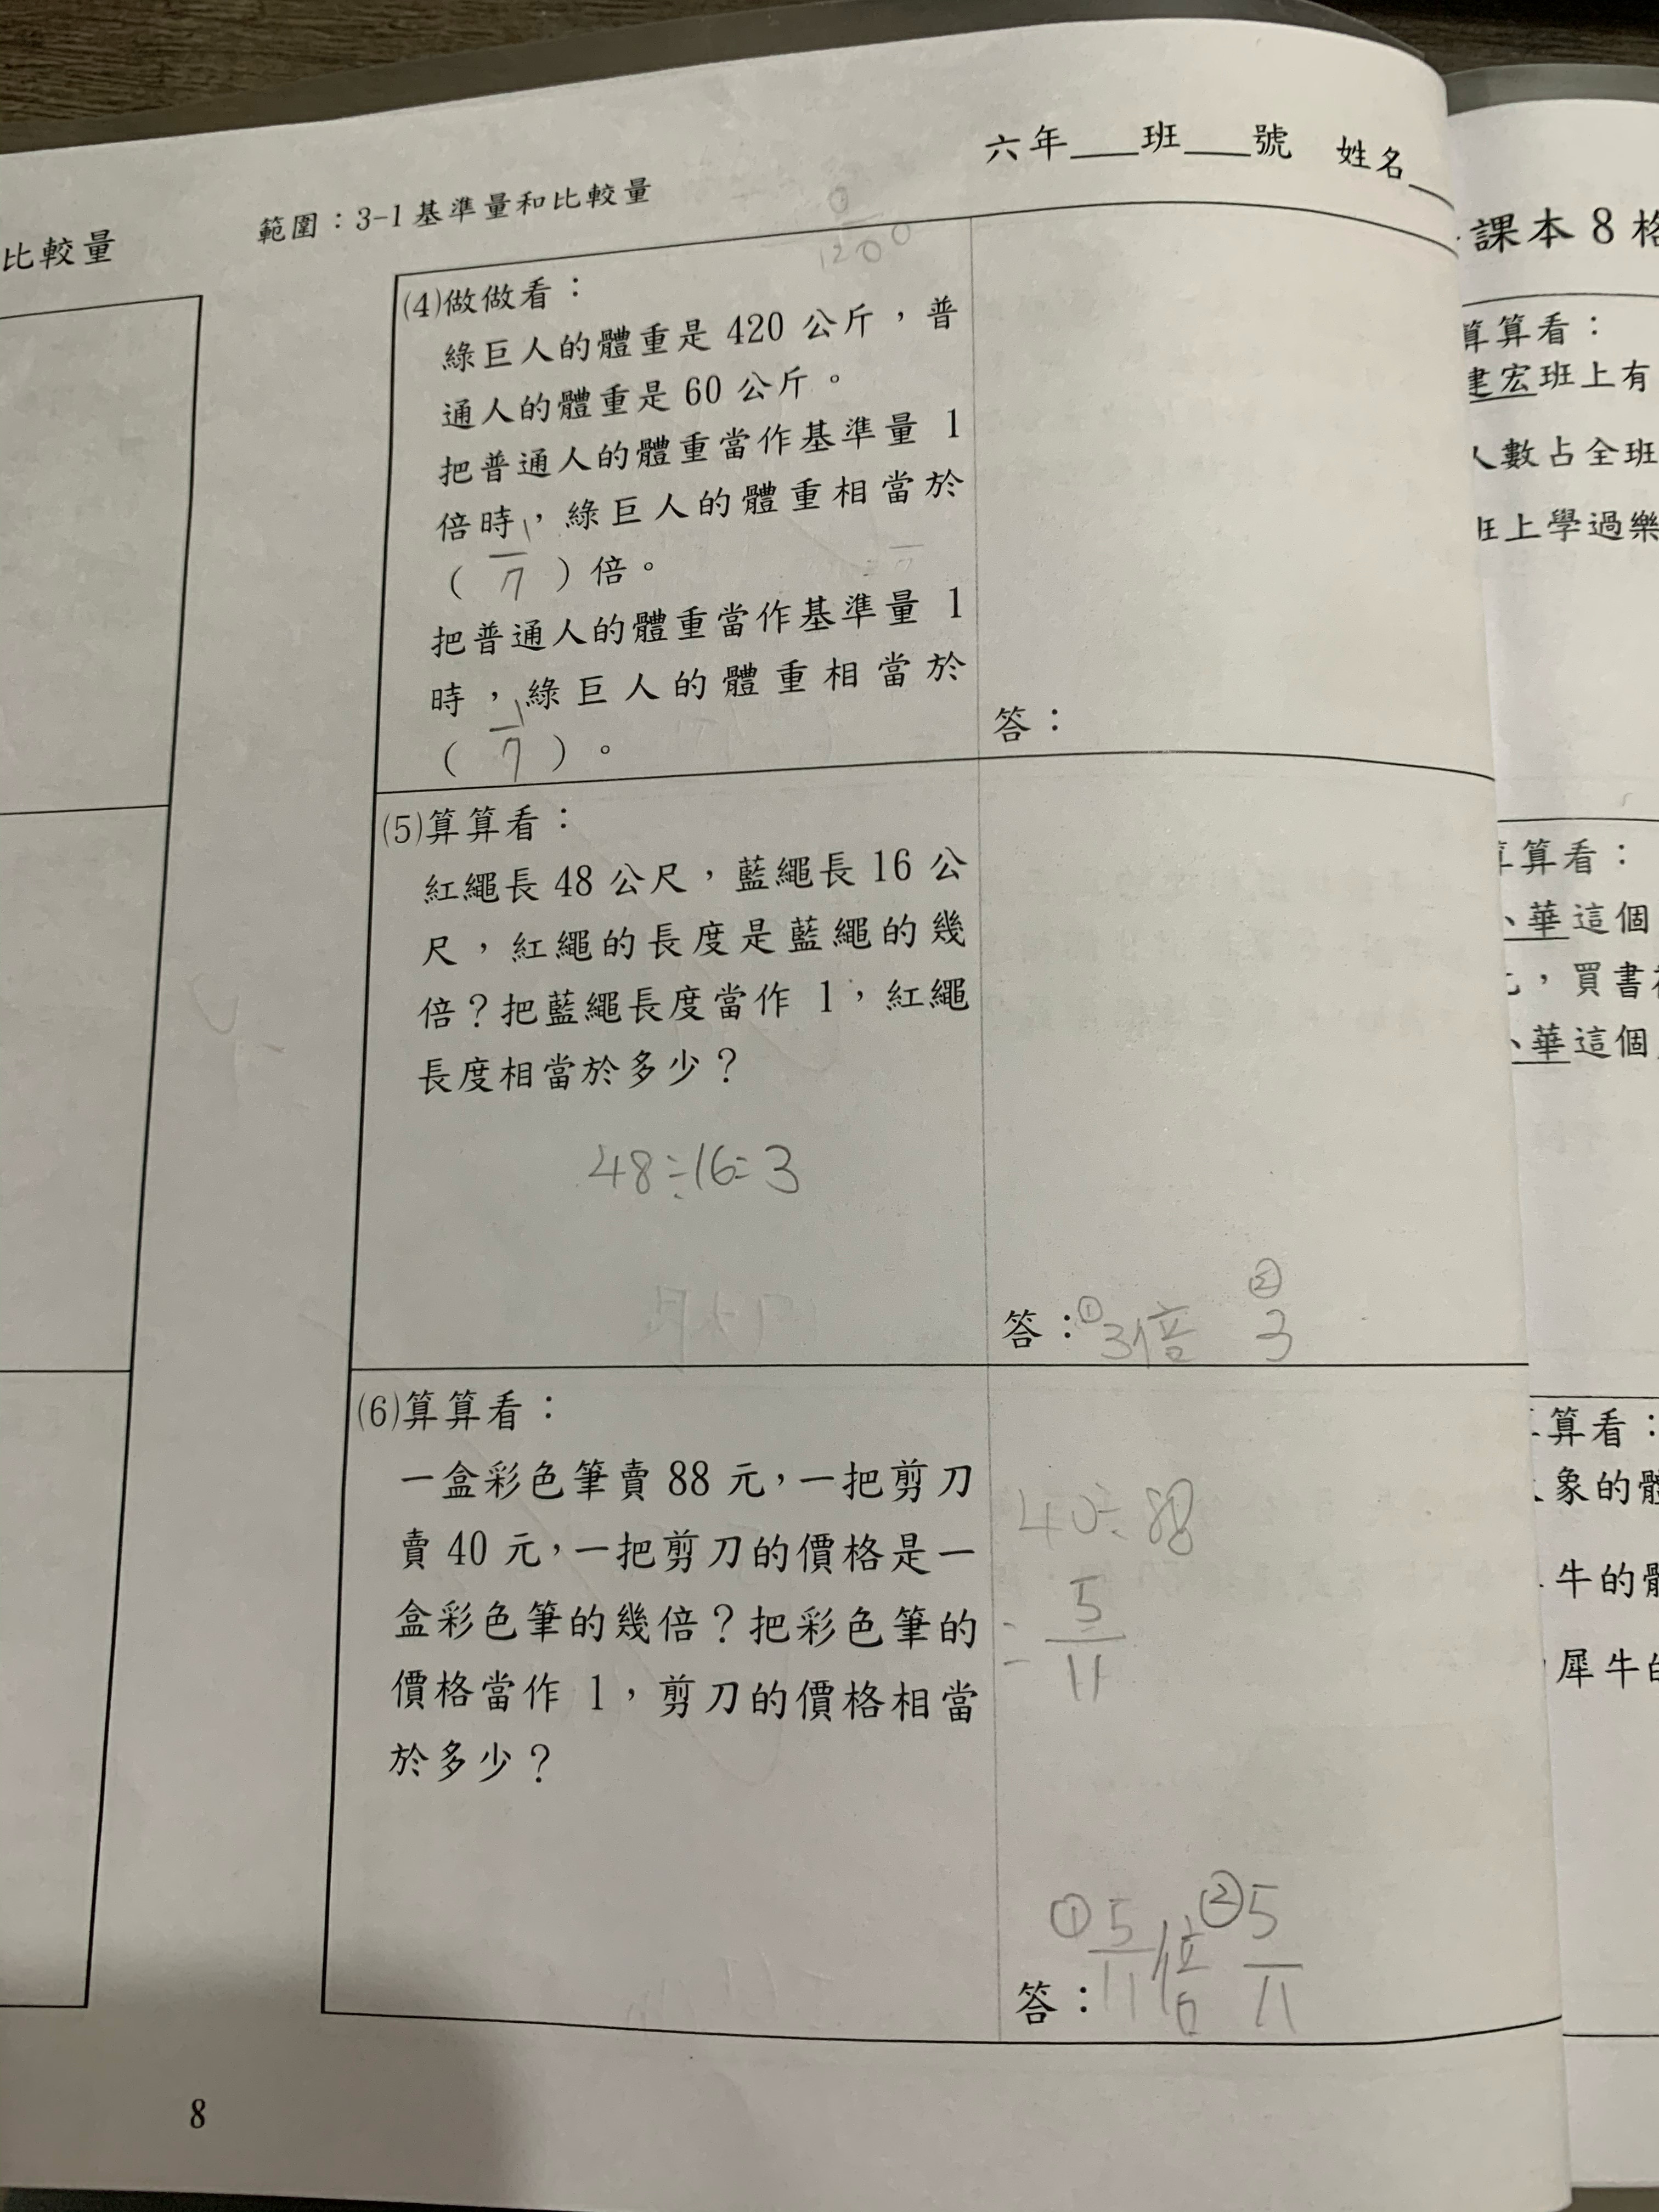 六年___班___號 姓名__
範圍：3-1基準量和比較量
比較量
0
1200
(4)做做看：
綠巨人的體重是 420 公斤，普
通人的體重是 60 公斤。
把普通人的體重當作基準量 1
倍時，綠巨人的體重相當於
( 1/7 ) 倍。
把普通人的體重當作基準量 1
時，綠巨人的體重相當於
( 1/7 )。
答：
(5)算算看：
紅繩長 48 公尺，藍繩長 16 公
尺，紅繩的長度是藍繩的幾
倍？把藍繩長度當作 1，紅繩
長度相當於多少？
48÷16=3
答：①3倍 ②3
(6)算算看：
一盒彩色筆賣 88 元，一把剪刀
賣 40 元，一把剪刀的價格是一
盒彩色筆的幾倍？把彩色筆的
價格當作 1，剪刀的價格相當
於多少？
40÷88
= 5/11
答：①5/11倍 ②5/11
8
課本 8 格
算算看：
建宏班上有
人數占全班
班上學過樂
算算看：
小華這個
，買書
小華這個
算算看：
象的體
牛的體
犀牛的